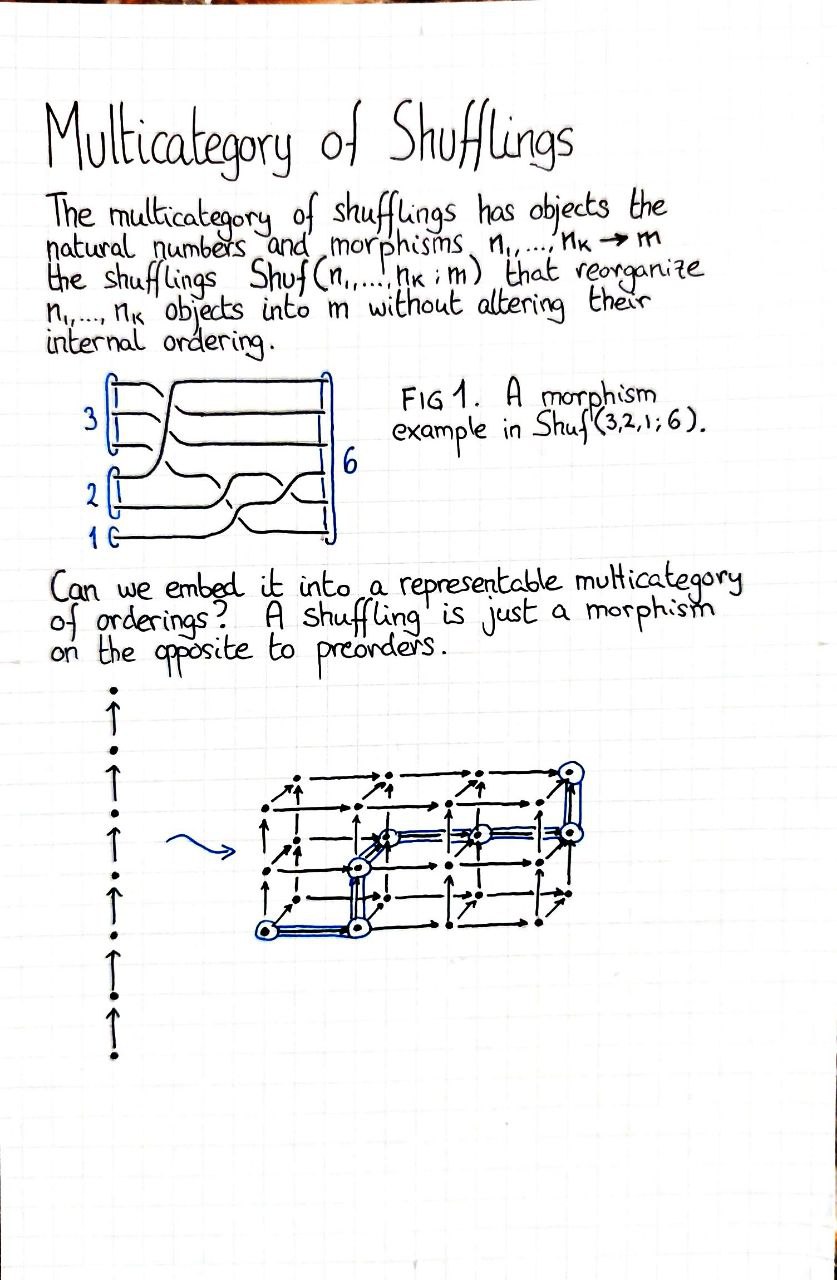 Multicategory of Shufflings
The multicategory of shufflings has objects the
natural numbers and morphisms n₁,..., nₖ → m
the shufflings Shuf(n₁,...,nₖ; m) that reorganize
n₁,..., nₖ objects into m without altering their
internal ordering.
3
2
1
6
FIG 1. A morphism
example in Shuf(3,2,1; 6).
Can we embed it into a representable multicategory
of orderings? A shuffling is just a morphism
on the opposite to preorders.